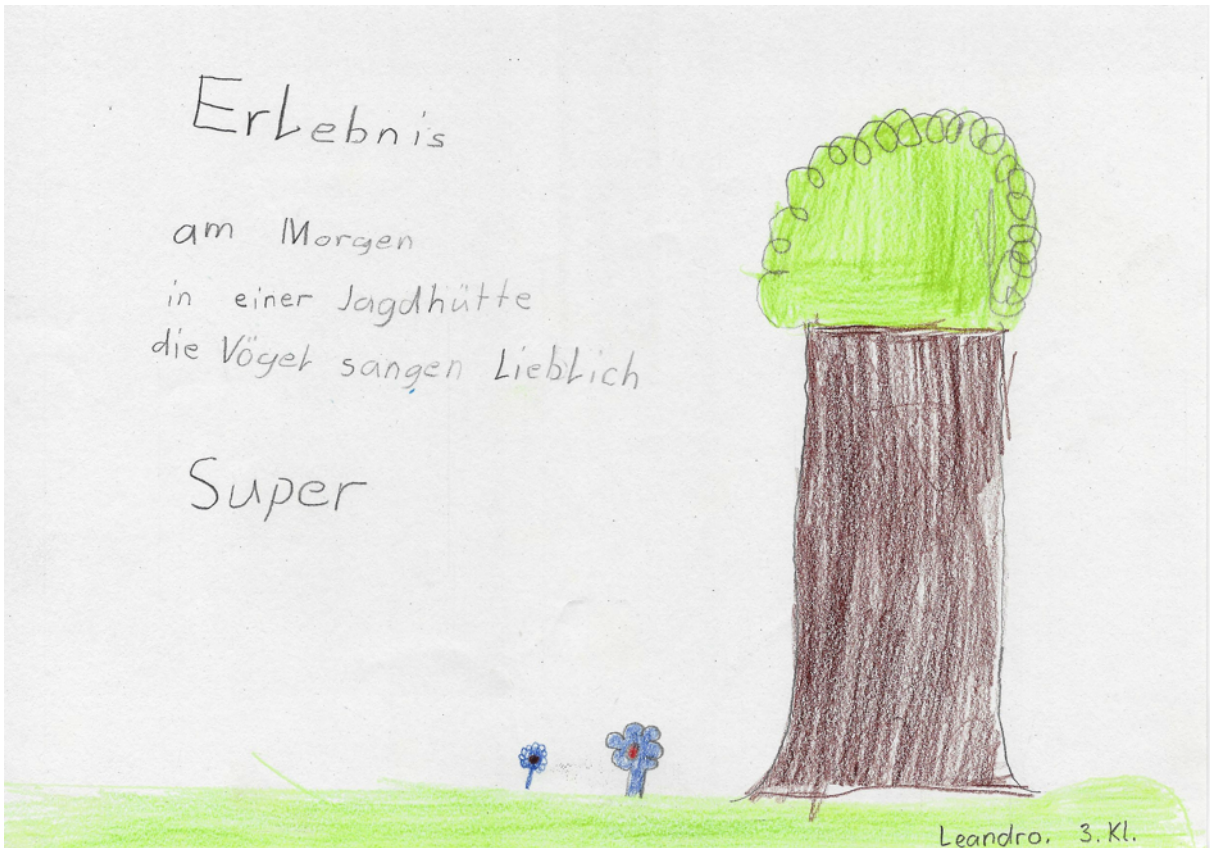 Erlebnis
am Morgen
in einer Jagdhütte
die Vögel sangen Lieblich
Super
Leandro. 3. Kl.